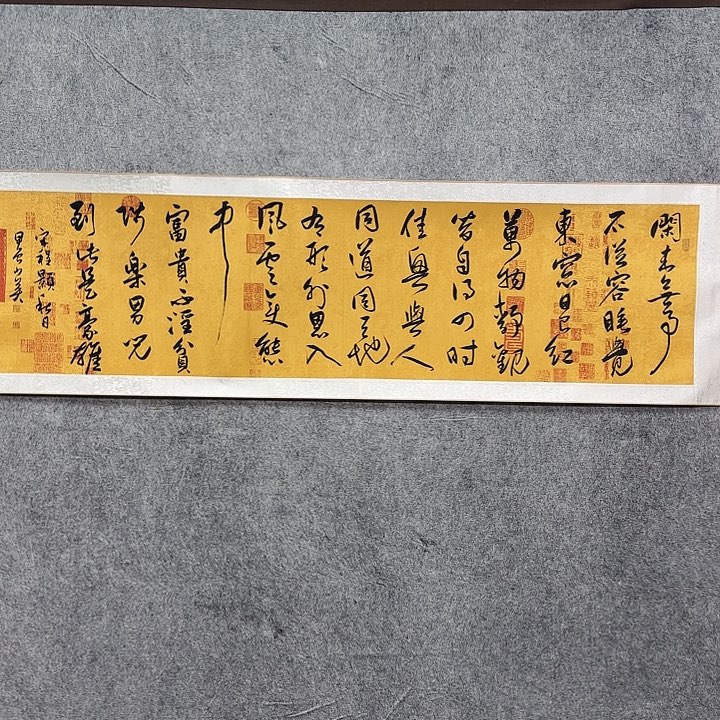 閑来無事
不從容睡覺
東窓日已紅
萬物靜觀
皆自得四时
佳興與人
同道同天地
有形外思入
風雲變態
中
富貴不淫貧
賤樂男児
到此是豪雄
宋程顥秋日